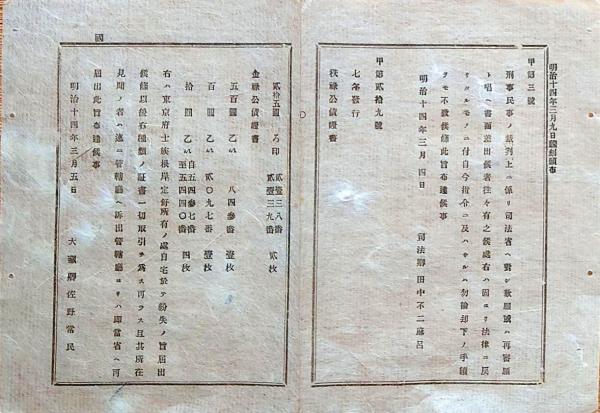 明治十四年三月九日飜刻頒布
甲第三號
刑事民事ノ裁判上ニ係リ司法省ヘ對シ歎願或ハ再審願
ト唱ヘ書面差出候者往々有之候處右ハ固ヨリ法律ニ戻
リタルモノニ付自今指令ニ及ハサルハ勿論却下ノ手續
ヲモ不致候條此旨布達候事
明治十四年三月四日
司法卿田中不二麻呂
甲第貳拾九號
七年發行
秩祿公債證書
貳拾五圓 ろ印 貳壹三八番 貳壹三九番 貳枚
金祿公債證書
五百圓 乙い 八四參番 壹枚
百圓 乙い 貳〇九七番 壹枚
拾圓 乙い 自五四參七番 至五四四〇番 四枚
右ハ東京府士族根岸定好所有ノ處自宅於テ紛失ノ旨届出
候條以後右種類ノ証書一切取引ヲ爲ス可ラス且其所在
見聞ノ者ハ速ニ管轄廳ヘ訴出管轄廳ヨリハ即當省ヘ可
届出此旨布達候事
明治十四年三月五日
大藏卿佐野常民
國